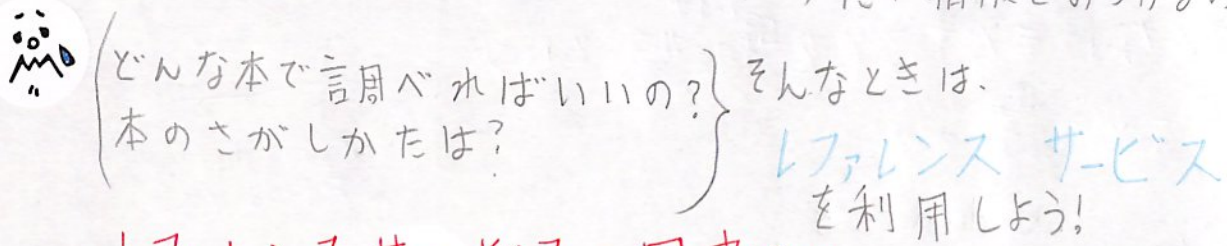 どんな本で調べればいいの?
本のさがしかたは?
そんなときは、
レファレンス サービス
を利用しよう!